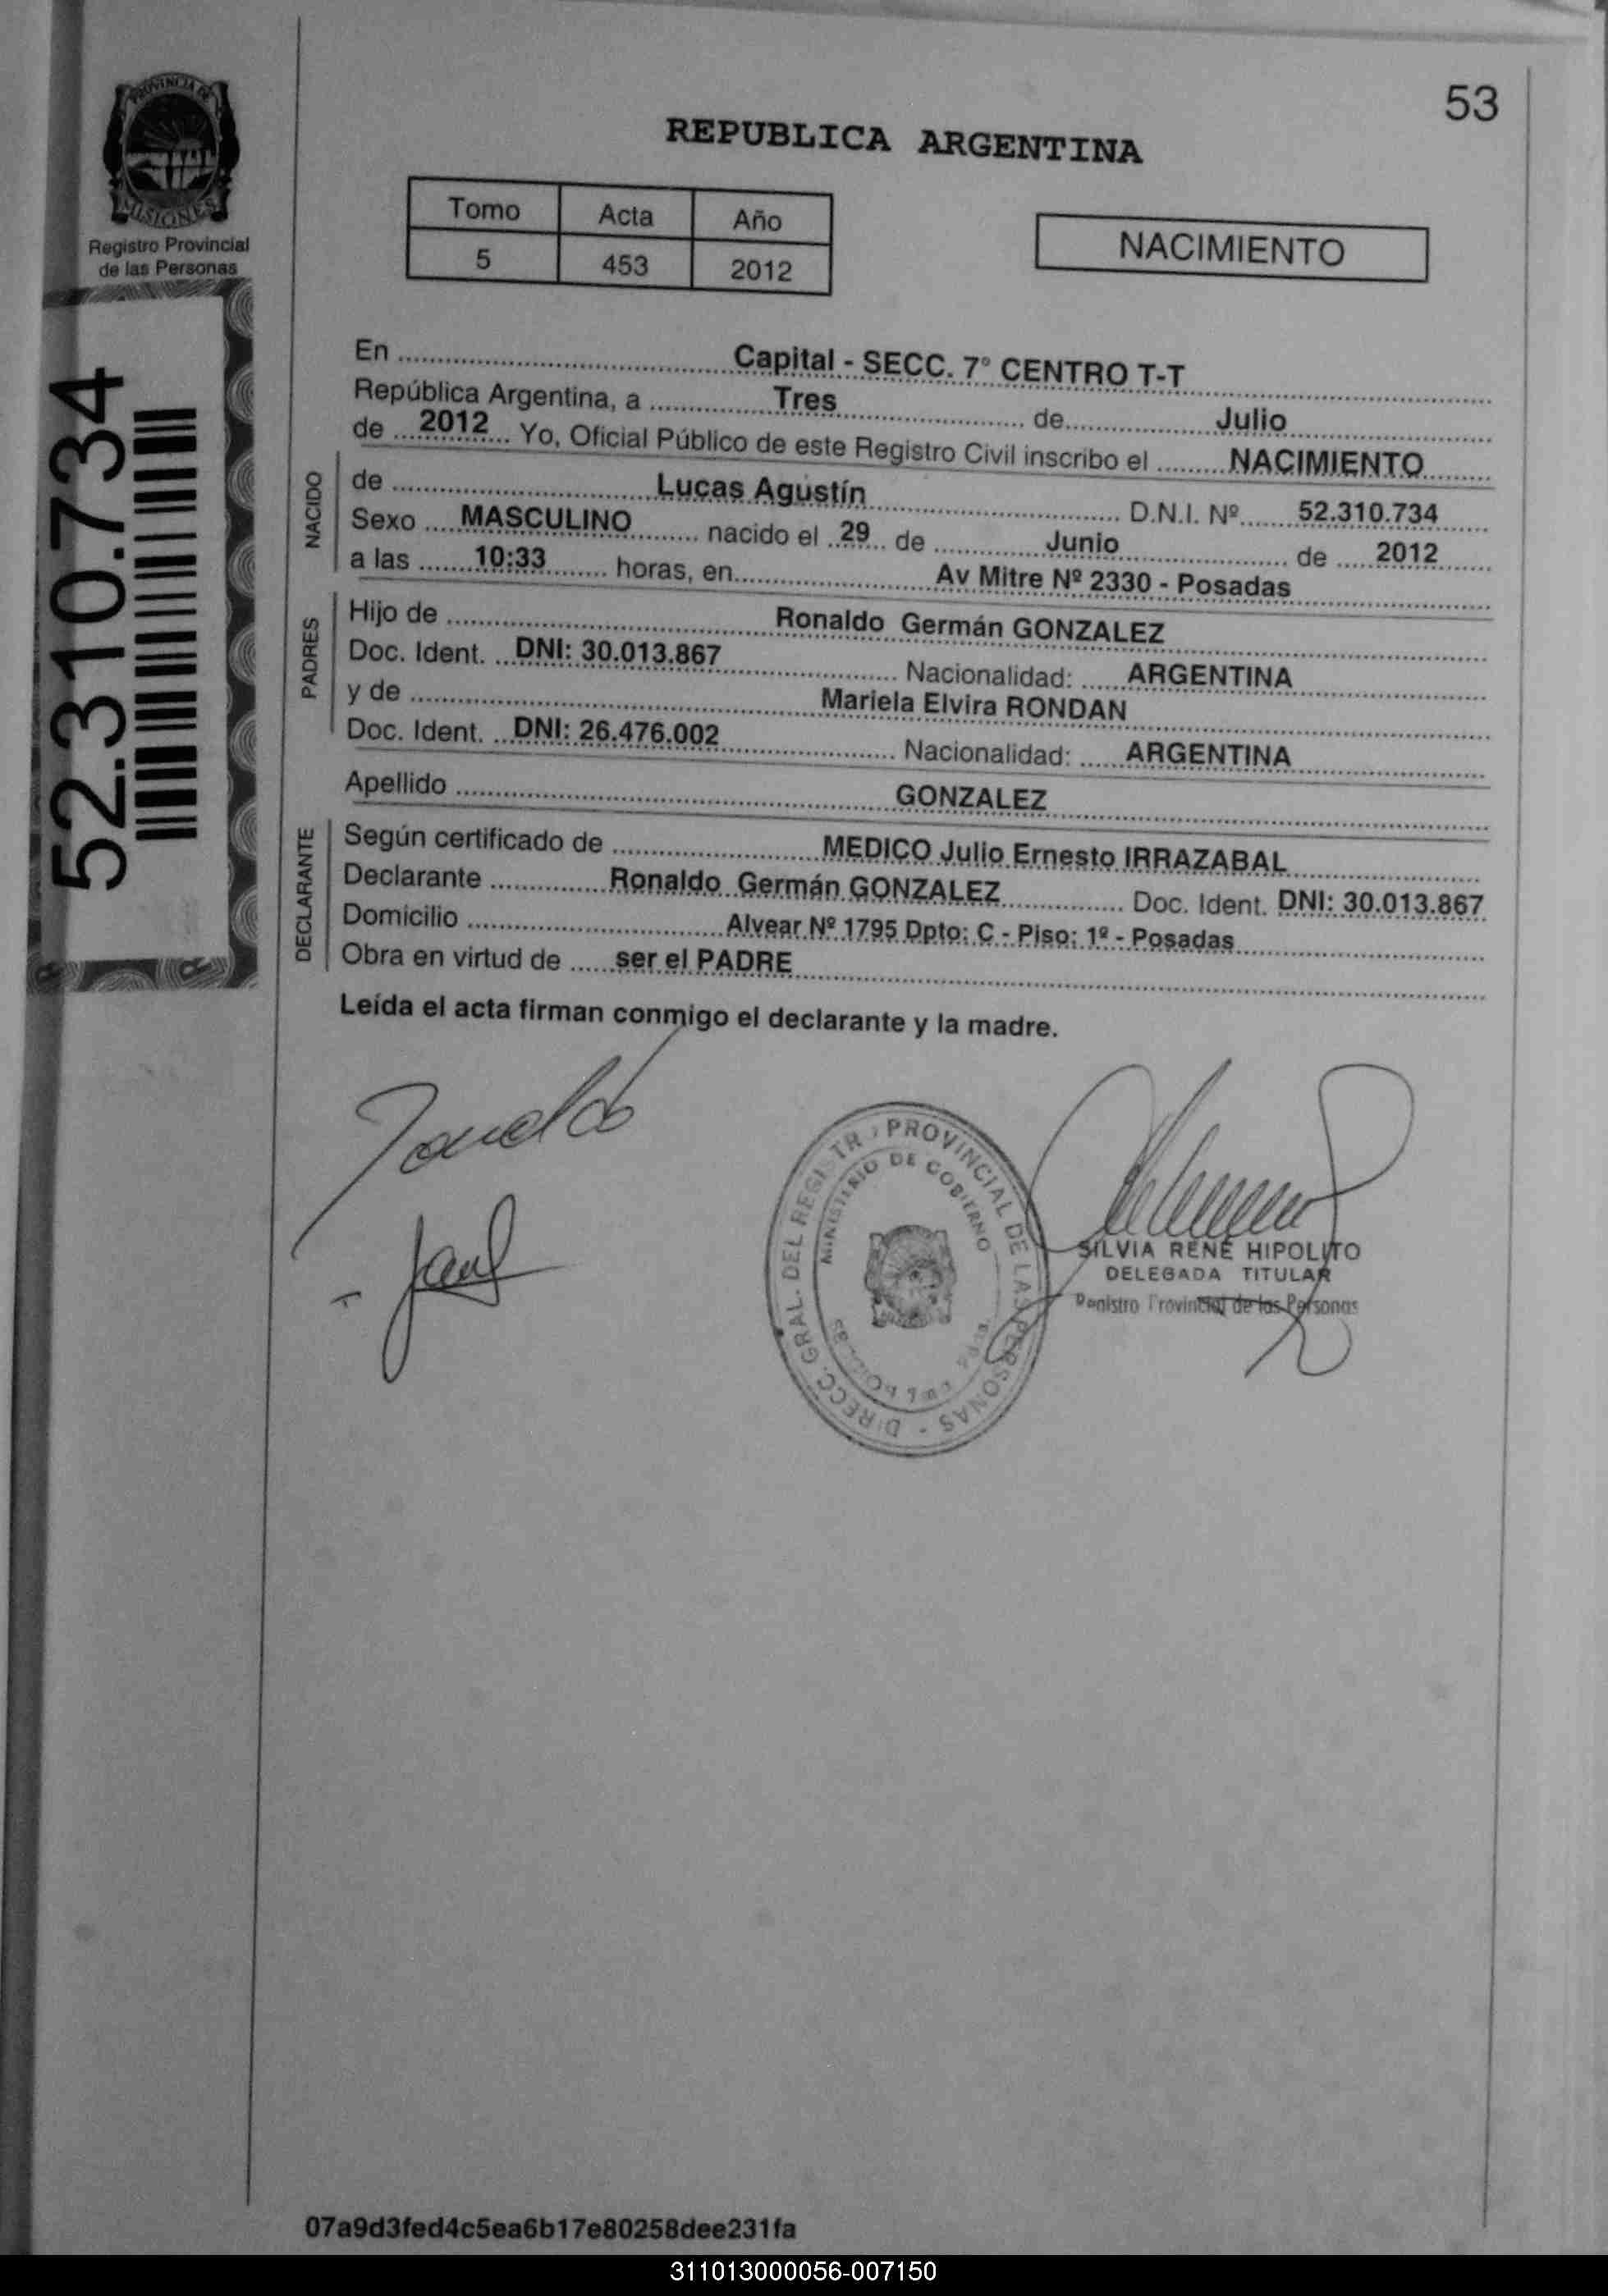 53
REPUBLICA ARGENTINA
PROVINCIA DE
MISIONES
Registro Provincial
de las Personas
Tomo Acta Año
5 453 2012
NACIMIENTO
52.310.734
En Capital - SECC. 7° CENTRO T-T
República Argentina, a Tres de Julio
de 2012 Yo, Oficial Público de este Registro Civil inscribo el NACIMIENTO
NACIDO
de Lucas Agustín D.N.I. Nº 52.310.734
Sexo MASCULINO nacido el 29 de Junio de 2012
a las 10:33 horas, en Av Mitre Nº 2330 - Posadas
PADRES
Hijo de Ronaldo Germán GONZALEZ
Doc. Ident. DNI: 30.013.867 Nacionalidad: ARGENTINA
y de Mariela Elvira RONDAN
Doc. Ident. DNI: 26.476.002 Nacionalidad: ARGENTINA
Apellido GONZALEZ
DECLARANTE
Según certificado de MEDICO Julio Ernesto IRRAZABAL
Declarante Ronaldo Germán GONZALEZ Doc. Ident. DNI: 30.013.867
Domicilio Alvear Nº 1795 Dpto: C - Piso: 1º - Posadas
Obra en virtud de ser el PADRE
Leída el acta firman conmigo el declarante y la madre.
DIRECC. GRAL. DEL REGISTR PROVINCIAL DE LAS PERSONAS
MINISTERIO DE GOBIERNO
SILVIA RENÉ HIPOLITO
DELEGADA TITULAR
Registro Provincial de las Personas
07a9d3fed4c5ea6b17e80258dee231fa
311013000056-007150